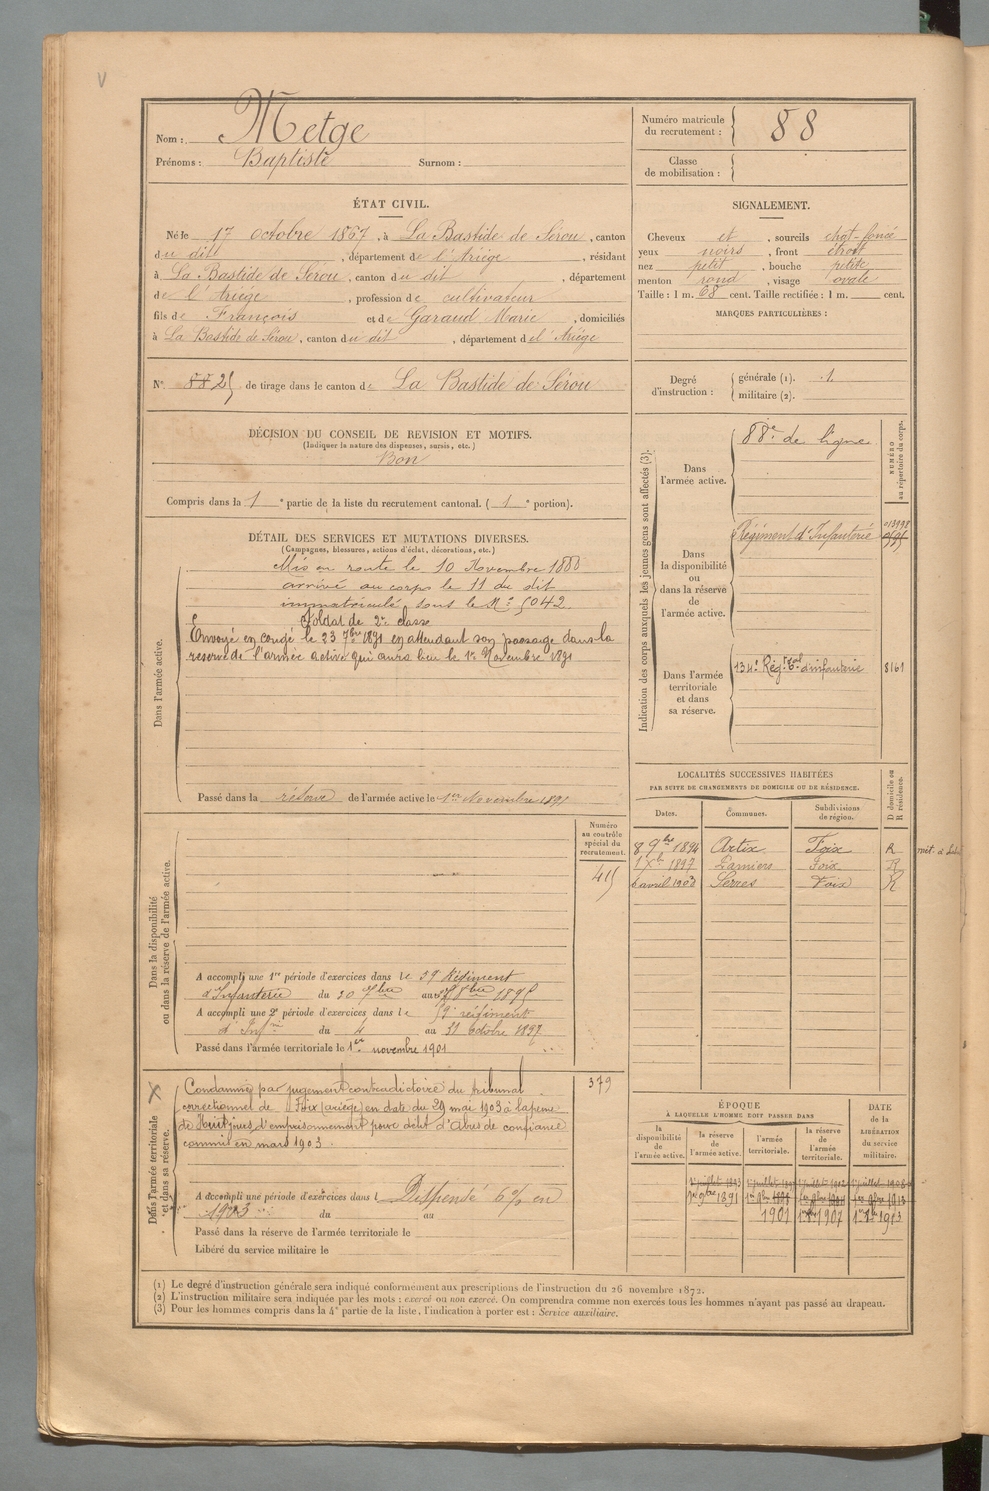 V
Nom : Metge
Prénoms : Baptiste Surnom :
Numéro matricule du recrutement : 88
Classe de mobilisation :
ÉTAT CIVIL.
Né le 17 octobre 1867, à La Bastide de Sérou, canton
du dit, département de l'Ariège, résidant
à La Bastide de Sérou, canton du dit, département
de l'Ariège, profession de cultivateur
fils de François et de Garaud Marie, domiciliés
à La Bastide de Sérou, canton du dit, département de l'Ariège
N° 88 25 de tirage dans le canton de La Bastide de Sérou
SIGNALEMENT.
Cheveux et, sourcils chat-foncé
yeux noirs, front étroit
nez petit, bouche petite
menton rond, visage ovale
Taille : 1 m. 68 cent. Taille rectifiée : 1 m. cent.
MARQUES PARTICULIÈRES :
Degré d'instruction : générale (1). 1.
militaire (2).
DÉCISION DU CONSEIL DE REVISION ET MOTIFS.
(Indiquer la nature des dispenses, sursis, etc.)
Bon
Compris dans la 1e partie de la liste du recrutement cantonal. (1e portion).
DÉTAIL DES SERVICES ET MUTATIONS DIVERSES.
(Campagnes, blessures, actions d'éclat, décorations, etc.)
Dans l'armée active.
Mis en route le 10 Novembre 1888
arrivé au corps le 11 du dit
immatriculé sous le N° 5042.
Soldat de 2e classe
Envoyé en congé le 23 7bre 1891 en attendant son passage dans la
reserve de l'armée active qui aura lieu le 1er Novembre 1891
Passé dans la réserve de l'armée active le 1er Novembre 1891
Indication des corps auxquels les jeunes gens sont affectés (3).
NUMÉRO au répertoire du corps.
Dans l'armée active.
88e de ligne
Dans la disponibilité ou dans la réserve de l'armée active.
Régiment d'Infanterie
013998
Dans l'armée territoriale et dans sa réserve.
134e Rég.t T.al d'infanterie 8161
LOCALITÉS SUCCESSIVES HABITÉES
PAR SUITE DE CHANGEMENTS DE DOMICILE OU DE RÉSIDENCE.
D domicile ou R résidence.
Dates. Communes. Subdivisions de région.
8 9bre 1894 Artix Foix R
1 Xbre 1897 Pamiers Foix R
6 avril 1903 Serres Foix R
Dans la disponibilité ou dans la réserve de l'armée active.
Numéro au contrôle spécial du recrutement.
415
A accompli une 1re période d'exercices dans le 59 Régiment
d'Infanterie du 30 7bre au 27 8bre 1895
A accompli une 2e période d'exercices dans le 59e régiment
d'Inf.rie du 4 au 31 octobre 1897
Passé dans l'armée territoriale le 1er novembre 1901
Dans l'armée territoriale et dans sa réserve.
X
379
Condamné par jugement contradictoire du tribunal
correctionnel de Foix (ariège) en date du 29 mai 1903 à la peine
de Huit jours d'emprisonnement pour délit d'Abus de confiance
commis en mars 1903.
A accompli une période d'exercices dans l Dispensé 6% en
1903 du au
Passé dans la réserve de l'armée territoriale le
Libéré du service militaire le
ÉPOQUE
À LAQUELLE L'HOMME DOIT PASSER DANS
DATE de la LIBÉRATION du service militaire.
la disponibilité de l'armée active. la réserve de l'armée active. l'armée territoriale. la réserve de l'armée territoriale.
1er 9bre 1891
1901 1907 1913
(1) Le degré d'instruction générale sera indiqué conformément aux prescriptions de l'instruction du 26 novembre 1872.
(2) L'instruction militaire sera indiquée par les mots : exercé ou non exercé. On comprendra comme non exercés tous les hommes n'ayant pas passé au drapeau.
(3) Pour les hommes compris dans la 4e partie de la liste, l'indication à porter est : Service auxiliaire.